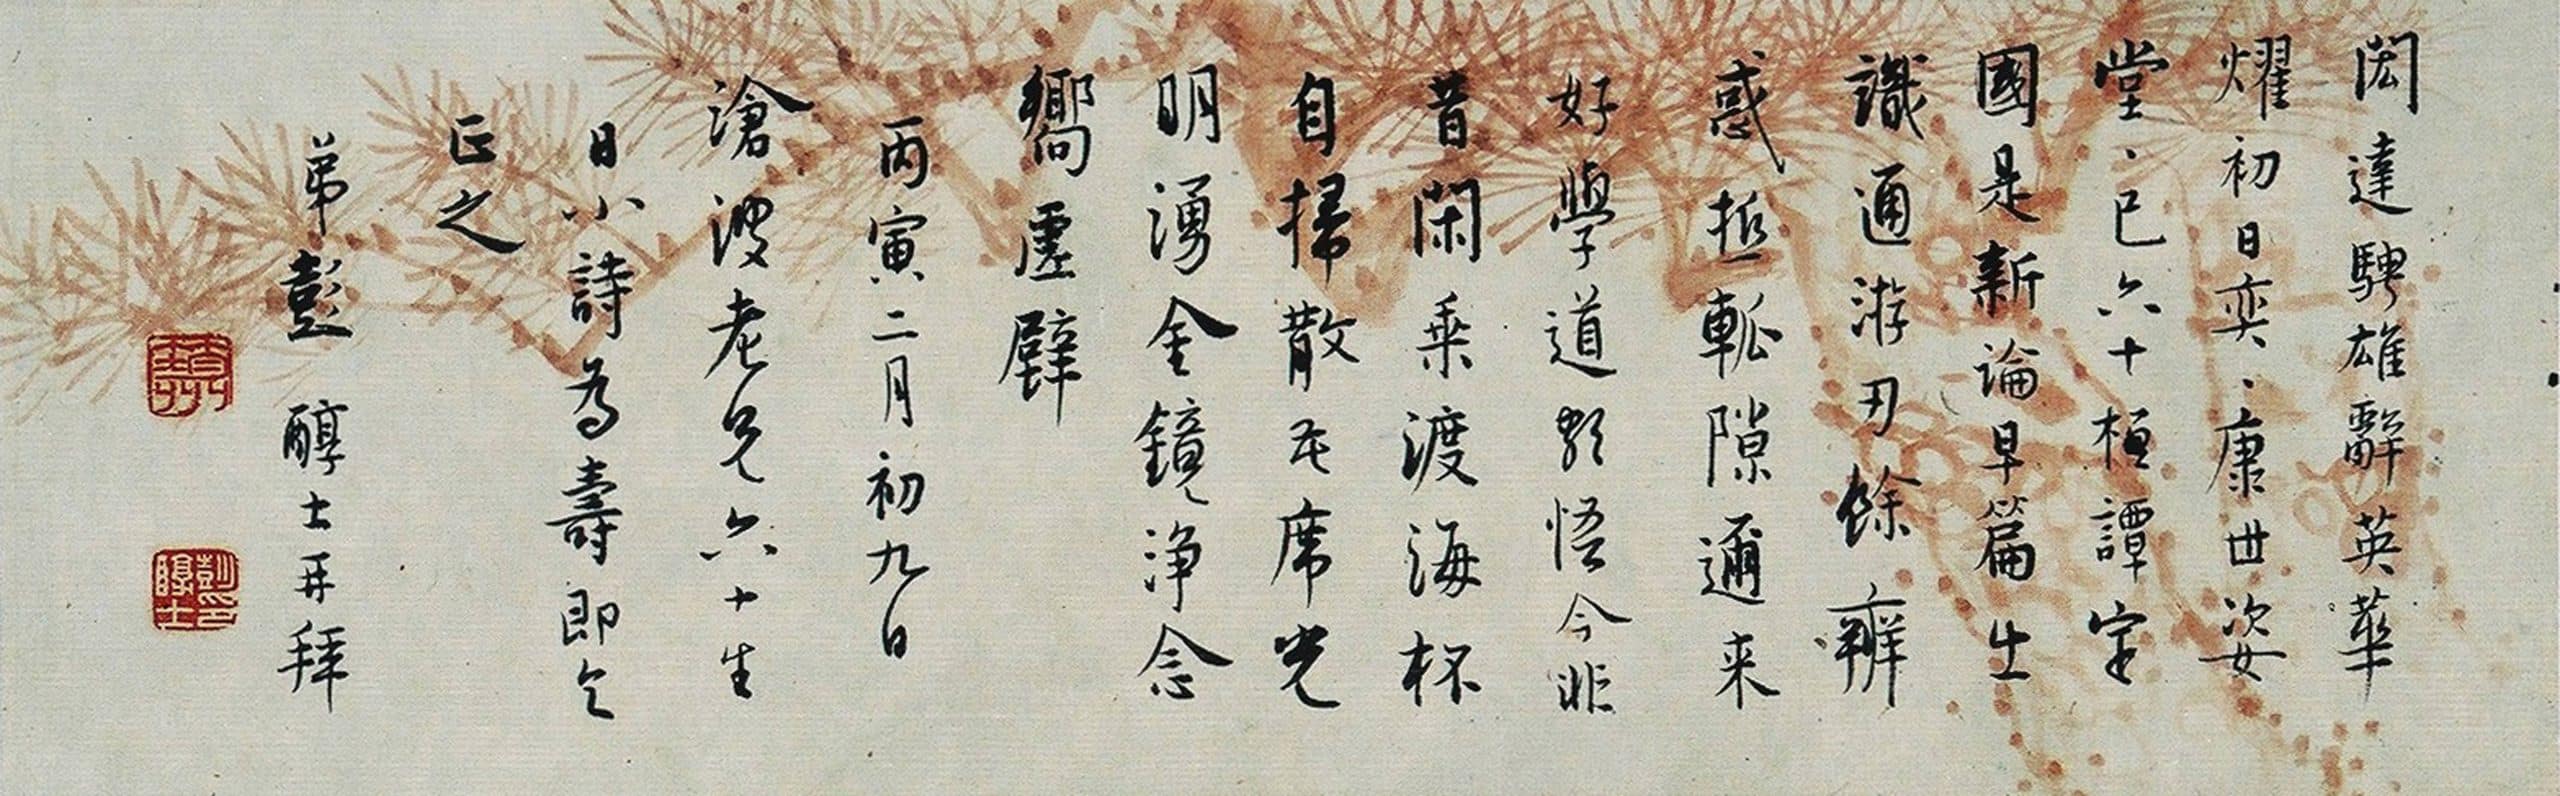 閎達騁雄辭英華
燿初日奕、康世姿
堂、已六十桓譚定
國是新論早篇出
識通游刃餘辨
惑抵瓠隙邇来
好學道頗悟今非
昔閑乗渡海杯
自掃散花席光
明湧金鏡净念
嚮虛壁
丙寅二月初九日
滄波老兄六十生
日小詩為壽即乞
正之
弟彭醇士再拜
彭印醇士